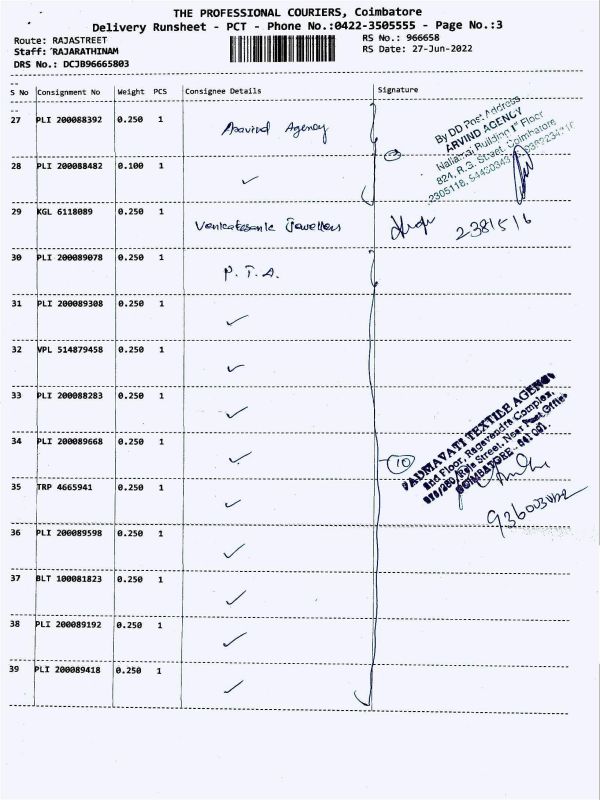 THE PROFESSIONAL COURIERS, Coimbatore
Delivery Runsheet - PCT - Phone No.:0422-3505555 - Page No.:3
Route: RAJASTREET
RS No.: 966658
Staff: RAJARATHINAM
RS Date: 27-Jun-2022
DRS No.: DCJB96665803
S No Consignment No Weight PCS Consignee Details Signature
27 PLI 200088392 0.250 1 Aravind Agency
By DD Post Address
ARVIND AGENCY
Building 1st Floor
824, R.S. Street, Coimbatore
28 PLI 200088482 0.100 1 ✓
29 KGL 6118089 0.250 1 Venkatesania Jewellers 2381516
30 PLI 200089078 0.250 1 P.T.A.
31 PLI 200089308 0.250 1 ✓
32 VPL 514879458 0.250 1 ✓
33 PLI 200088283 0.250 1 ✓
34 PLI 200089668 0.250 1 ✓ 10
PADMAVATI TEXTILE AGENCY
2nd Floor, Ragavendra Complex,
Raja Street, Near Post Office
COIMBATORE - 641 001.
35 TRP 4665941 0.250 1 ✓
36 PLI 200089598 0.250 1 ✓
37 BLT 100081823 0.250 1 ✓
38 PLI 200089192 0.250 1 ✓
39 PLI 200089418 0.250 1 ✓